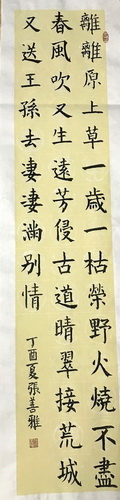 離離原上草一歲一枯榮野火燒不盡
春風吹又生遠芳侵古道晴翠接荒城
又送王孫去淒淒滿別情
丁酉夏張善雅